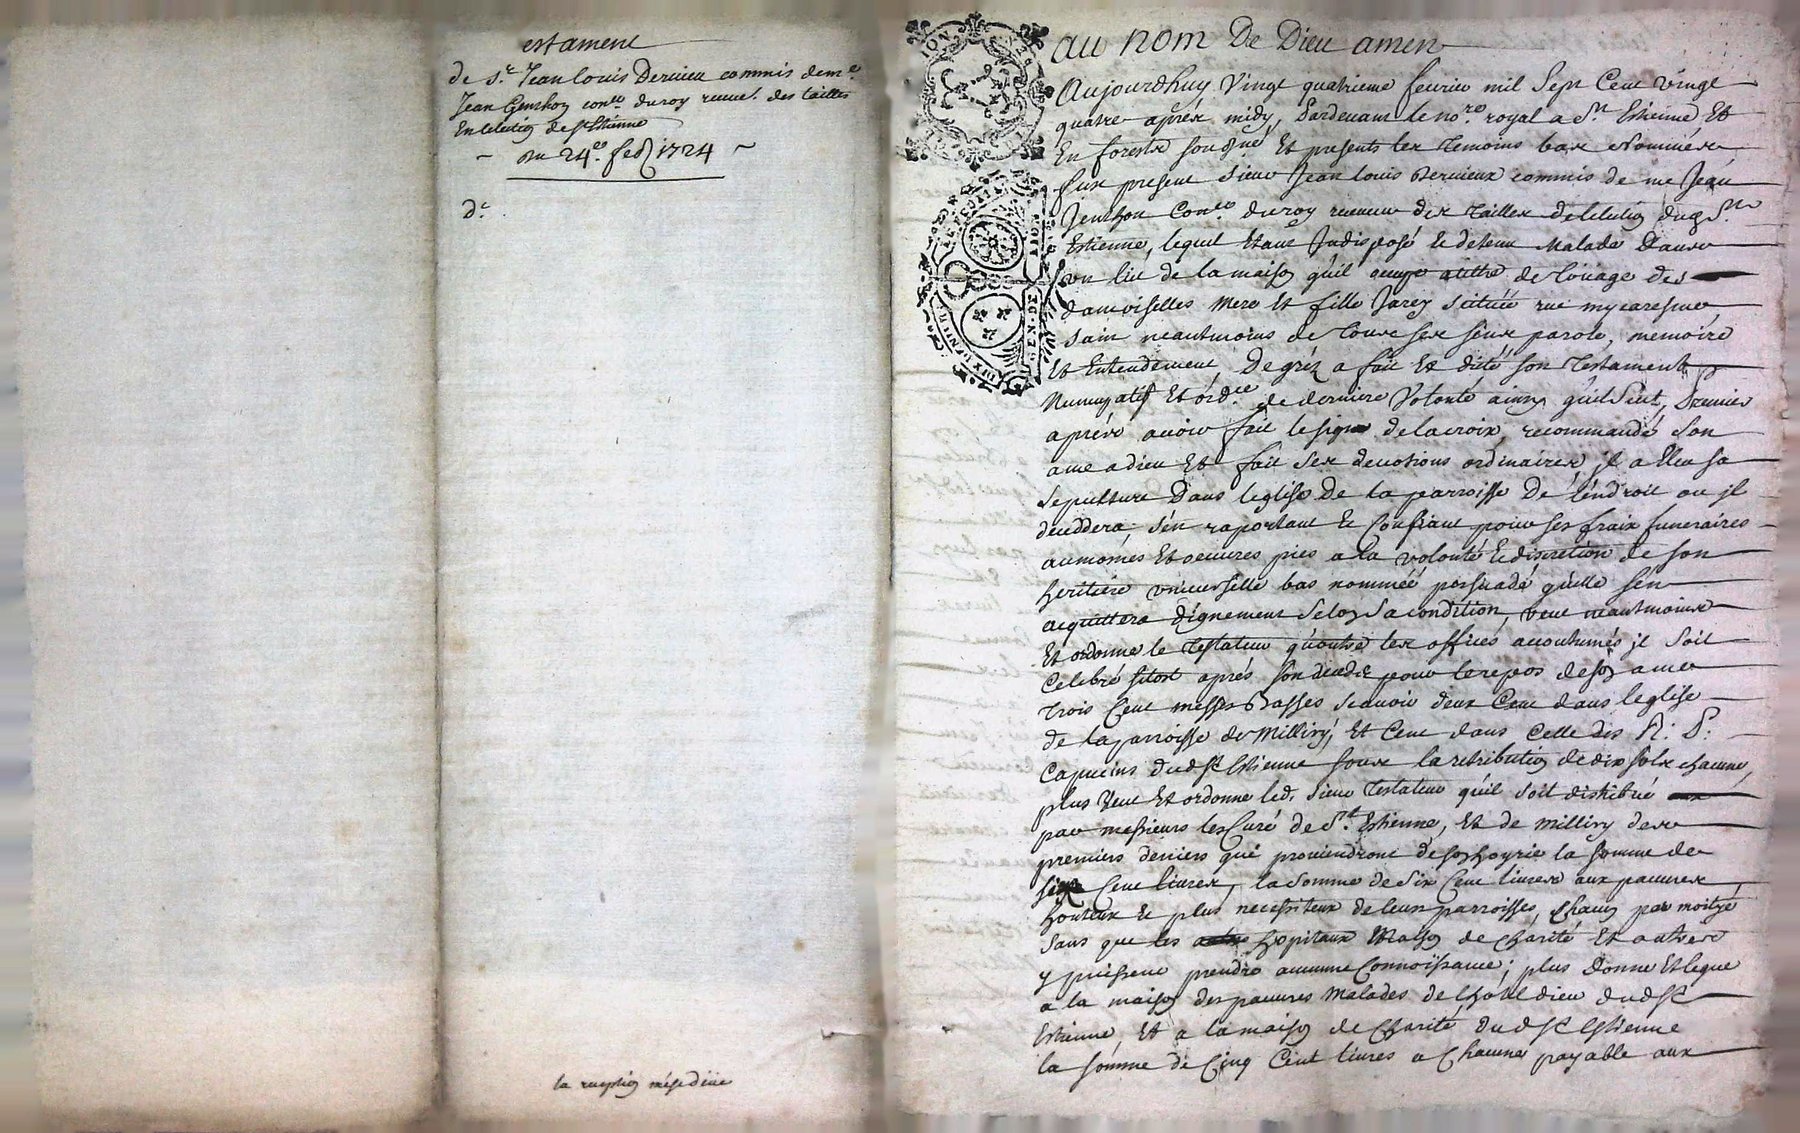 estament
de s.r Jean louis Deruieu commis de me.
Jean Genthon con.er du roy receue.r des tailles
En lelection de St Estienne
- du 24e. feb 1724 ~
d.t
la reception mise deüe
au nom De Dieu amen
Aujourdhuy Vingt quatrieme feurier mil Sept Cent Vingt
quatre aprés midy, Pardeuant le no.re royal a St Estienne Et
En forestz sousigné Et presents les Temoins bas Nommés
fut present Sieur Jean louis Deruieux commis de me Jean
Jenthon Con.er du roy receueur des Tailles de lelection dud St
Estienne, lequel Etant Indisposé et detenu Malade Dans
un lict de la maison quil occupe a tittre de Loüage des
damoiselles mere Et fille Jarey Scituée rue mycaresme
sain neantmoins de Tous ses sens parole, memoire
Et Entendement, De gréz a fait Et dicté son Testament
Nuncupatif Et ord.ce de derniere Volonté ainsy quil Suit, Premier
aprés auoir fait le signe de la croix, recommandé Son
ame a dieu Et fait Ses deuotions ordinaires, il a Eleu sa
Sepulture Dans leglise De la parroisse De L'éndroit ou il
deceddera s'en raportant Et Confiant pour ses fraix funeraires
aumônes Et oeuures pies a la volonté Et discretion de son
heritiere vniuerselle bas nommée persuadé qu'elle sén
acquittera dignement Selon Sa condition, veut neantmoins
Et ordonne le Testateur qúoutre les offices accoutumés il Soit
Celebré sitost aprés Son decéds pour le repos de son ame
Trois Cent messes Basses Scauoir deux Cent dans leglise
de la parroisse de Millery, Et Cent dans Celle des R: P:
Capucins dud St Estienne sous la retribution de dix sols chacune,
plus Veut Et ordonne led. Sieur Testateur qu'il Soit distribué
par messieurs les Curé de St Estienne, Et de Millery des
premiers deniers qui prouiendront de son hoyrie la somme de
Six Cent liures, la Somme de Six Cent liures aux pauures
honteux Et plus necessiteux de leurs parroisses, chacun par moityé
Sans que les hopitaux Maison de Charité Et autres
y puissent prendre aucune Connoissance; plus donne Et legue
a la maison des pauures Malades de lhotel dieu dud St
Estienne, Et a la maison de Charité dud St Estienne
la sómme de Cinq Cent liures a Chacune payable aux